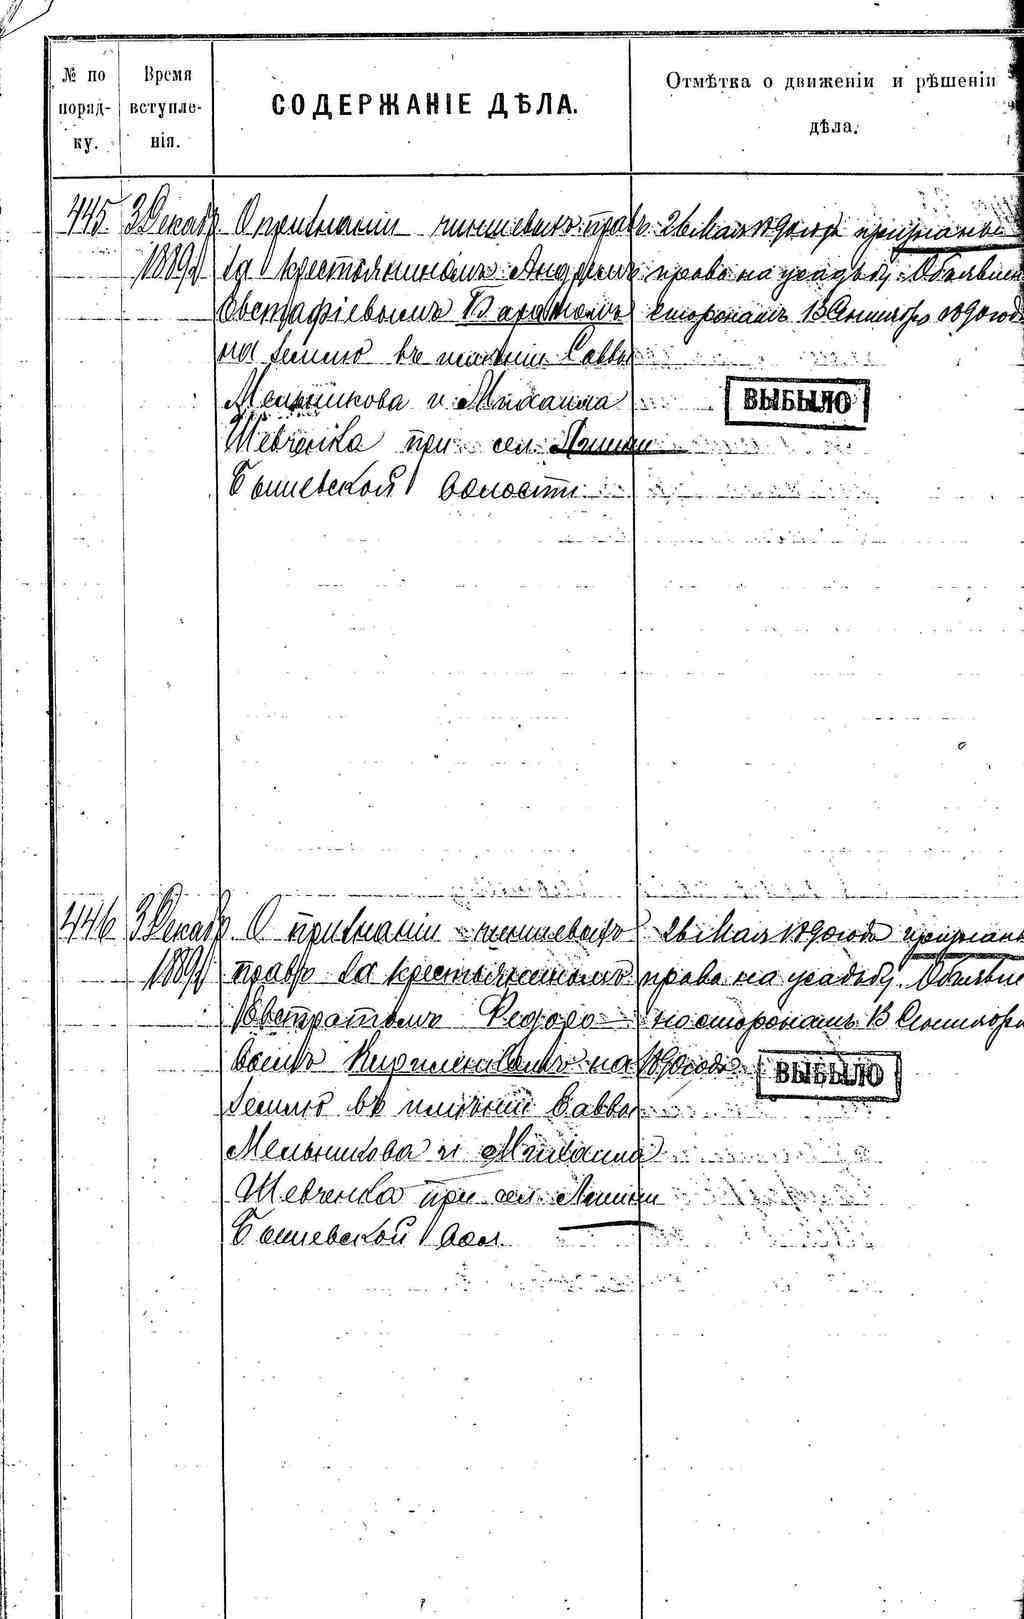 № по поряд- ку.
Время вступле- нія.
СОДЕРЖАНІЕ ДѢЛА.
Отмѣтка о движеніи и рѣшеніи дѣла.
445
3 Декабр
1889 г
О признаніи чиншевыхъ правъ
за крестьяниномъ Андреемъ
Евстафіевымъ
на землю въ имѣніи Саввы
Мельникова и Михаила
Шевченка при сел.
Бышевской волости
26 Мая 1890 года признаны
права на усадьбу. Объявлен
сторонамъ 13 Сентябр 1890 год
ВЫБЫЛО
446
3 Декабр
1889 г
О признаніи чиншевыхъ
правъ за крестьяниномъ
Евстратомъ Федоро-
вымъ на
землю въ имѣніи Саввы
Мельникова и Михаила
Шевченка при сел.
Бышевской вол.
26 Мая 1890 года признан
права на усадьбу. Объявле
но сторонамъ 13 Сентябр
1890 года
ВЫБЫЛО